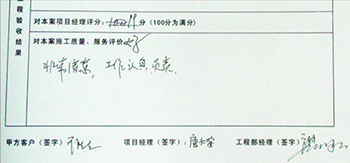 工程验收结果
对本案项目经理评分：100分（100分为满分）
对本案施工质量、服务评价：好
非常满意，工作认真负责。
甲方客户（签字） 项目经理（签字）：唐仁荣 工程部经理（签字）